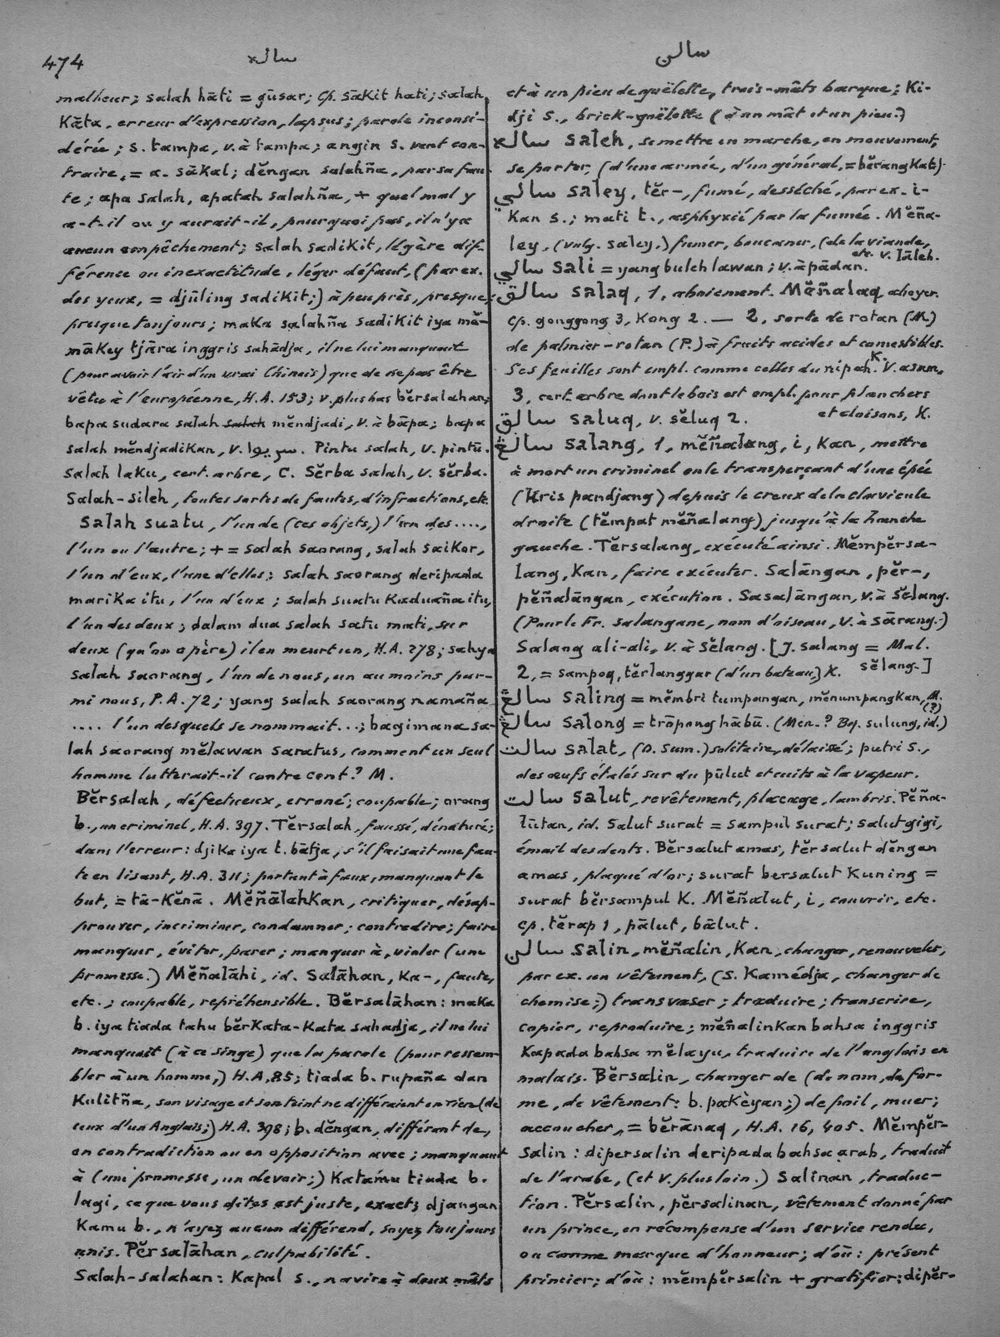 474
ساله
سالن
malheur; salah hāti = gūsar; cp. sākit hati; salah
Kāta, erreur d'expression, lapsus; parole inconsi-
dérée; s. tampa, v. à tampa; angin s. vent con-
traire, = a. sākal; dĕngan salahña, par sa fau-
te; apa salah, apatah salahña, + quel mal y
a-t-il ou y aurait-il, pourquoi pas, il n'y a
aucun empêchement; salah sadikit, légère dif-
férence ou inexactitude, léger défaut, (par ex.
des yeux, = djūling sadikit;) à peu près, presque,
presque toujours; maka salahña sadikit iya mĕ-
mākey tjāra inggris sahādja, il ne lui manquait
(pour avoir l'air d'un vrai Chinois) que de ne pas être
vêtu à l'européenne, H.A. 153; v. plus bas bĕrsalahan;
bapa sudara salah mĕndjadi, v. à bāpa; bapa
salah mĕndjadikan, v. Pintu salah, v. pintū.
Salah laku, cert. arbre, C. Sĕrba salah, v. sĕrba.
Salah-sileh, toutes sortes de fautes, d'infractions, etc.
Salah suatu, l'un de (ces objets,) l'un des ....,
l'un ou l'autre; + = salah saorang, salah saikor,
l'un d'eux, l'une d'elles; salah saorang deripada
marika itu, l'un d'eux; salah suatu kaduaña itu,
l'un des deux; dalam dua salah satu mati, sur
deux (qu'on opère) il en meurt un, H.A. 278; sahya
salah saorang, l'un de nous, un au moins par-
mi nous, P.A. 72; yang salah saorang namaña
.... l'un desquels se nommait ...; bagimana sa-
lah saorang mĕlawan saratus, comment un seul
homme lutterait-il contre cent? M.
Bĕrsalah, défectueux, erroné; coupable; orang
b., un criminel, H.A. 397. Tĕrsalah, faussé, dénaturé;
dans l'erreur: djika iya t. bātja, s'il faisait une fau-
te en lisant, H.A. 311; portant à faux, manquant le
but, = tā-Kĕnā. Mĕñālahkan, critiquer, désap-
prouver, incriminer, condamner; contredire; faire
manquer, éviter, parer; manquer à, violer (une
promesse.) Mĕñalāhi, id. Salāhan, ka-, faute,
etc.; coupable, repréhensible. Bĕrsalāhan: maka
b. iya tiada tahu bĕrkata-kata sahadja, il ne lui
manquait (à ce singe) que la parole (pour ressem-
bler à un homme,) H.A. 85; tiada b. rupaña dan
kulitña, son visage et son teint ne différaient en rien (de
ceux d'un Anglais;) H.A. 398; b. dĕngan, différant de,
en contradiction ou en opposition avec; manquant
à (une promesse, un devoir;) katāmu tiada b.
lagi, ce que vous dites est juste, exact; djangan
kamu b., n'ayez aucun différend, soyez toujours
unis. Pĕrsalāhan, culpabilité.
Salah-salahan: Kapal s., navire à deux mâts
et à un pieu de goëlette, trois-mâts barque; Ki-
dji s., brick-goëlette (à un mât et un pieu.)
ساله saleh, se mettre en marche, en mouvement,
se porter, (d'une armée, d'un général, = bĕrangkat).
سالي saley, tĕr-, fumé, desséché, par ex. i-
kan s.; mati t., asphyxié par la fumée. Mĕña-
ley, (vulg. saley,) fumer, boucaner, (de la viande,
etc. v. lāleh.
سالي sali = yang buleh lawan; v. à pādan.
سالق salaq, 1, aboiement. Mĕñalaq aboyer.
cp. gonggong 3, kong 2. — 2, sorte de rotan (M.)
de palmier-rotan (P.) à fruits acides et comestibles.
Ses feuilles sont empl. comme celles du nipah. K. V. asam.
3, cert. arbre dont le bois est empl. pour planchers
et cloisons, K.
سالق saluq, v. sĕluq 2.
سالڠ salang, 1, mĕñalang, i, kan, mettre
à mort un criminel en le transperçant d'une épée
(kris pandjang) depuis le creux de la clavicule
droite (tĕmpat mĕñalang) jusqu'à la hanche
gauche. Tĕrsalang, exécuté ainsi. Mĕmpĕrsa-
lang, kan, faire exécuter. Salāngan, pĕr-,
pĕñalāngan, exécution. Sasalāngan, v. à sĕlang.
(Pour le Fr. salangane, nom d'oiseau, v. à sārang.)
Salang ali-ali, v. à sĕlang. [J. salang = Mal.
sĕlang.]
2, = sampoq, tĕrlanggar (d'un bateau,) K.
سالڠ saling = mĕmbri tumpangan, mĕnumpangkan, M.
(?)
سالڠ salong = trāpang hābū. (Men.? Bq. sulung, id.)
سالت salat, (O. Sum.) solitaire, délaissé; putri s.,
des œufs étalés sur du pūlut et cuits à la vapeur.
سالت salut, revêtement, placage, lambris. Pĕña-
lūtan, id. Salut surat = sampul surat; salut gigi,
émail des dents. Bĕrsalut amas, tĕrsalut dĕngan
amas, plaqué d'or; surat bersalut kuning =
surat bĕrsampul K. Mĕñalut, i, couvrir, etc.
cp. tĕrap 1, pālut, bālut.
سالن salin, mĕñalin, kan, changer, renouveler,
par ex. un vêtement, (s. kamédja, changer de
chemise;) transvaser; traduire; transcrire,
copier, reproduire; mĕñalinkan bahsa inggris
kapada bahsa mĕlayu, traduire de l'anglais en
malais. Bĕrsalin, changer de (de nom, de for-
me, de vêtement: b. pakèyan;) de poil, muer;
accoucher, = bĕrānaq, H.A. 16, 405. Mĕmpĕr-
salin: dipersalin deripada bahsa arab, traduit
de l'arabe, (et v. plus loin.) Salinan, traduc-
tion. Pĕrsalin, pĕrsalinan, vêtement donné par
un prince, en récompense d'un service rendu,
ou comme marque d'honneur; d'où: présent
princier; d'où: mĕmpĕrsalin + gratifier: dipĕr-